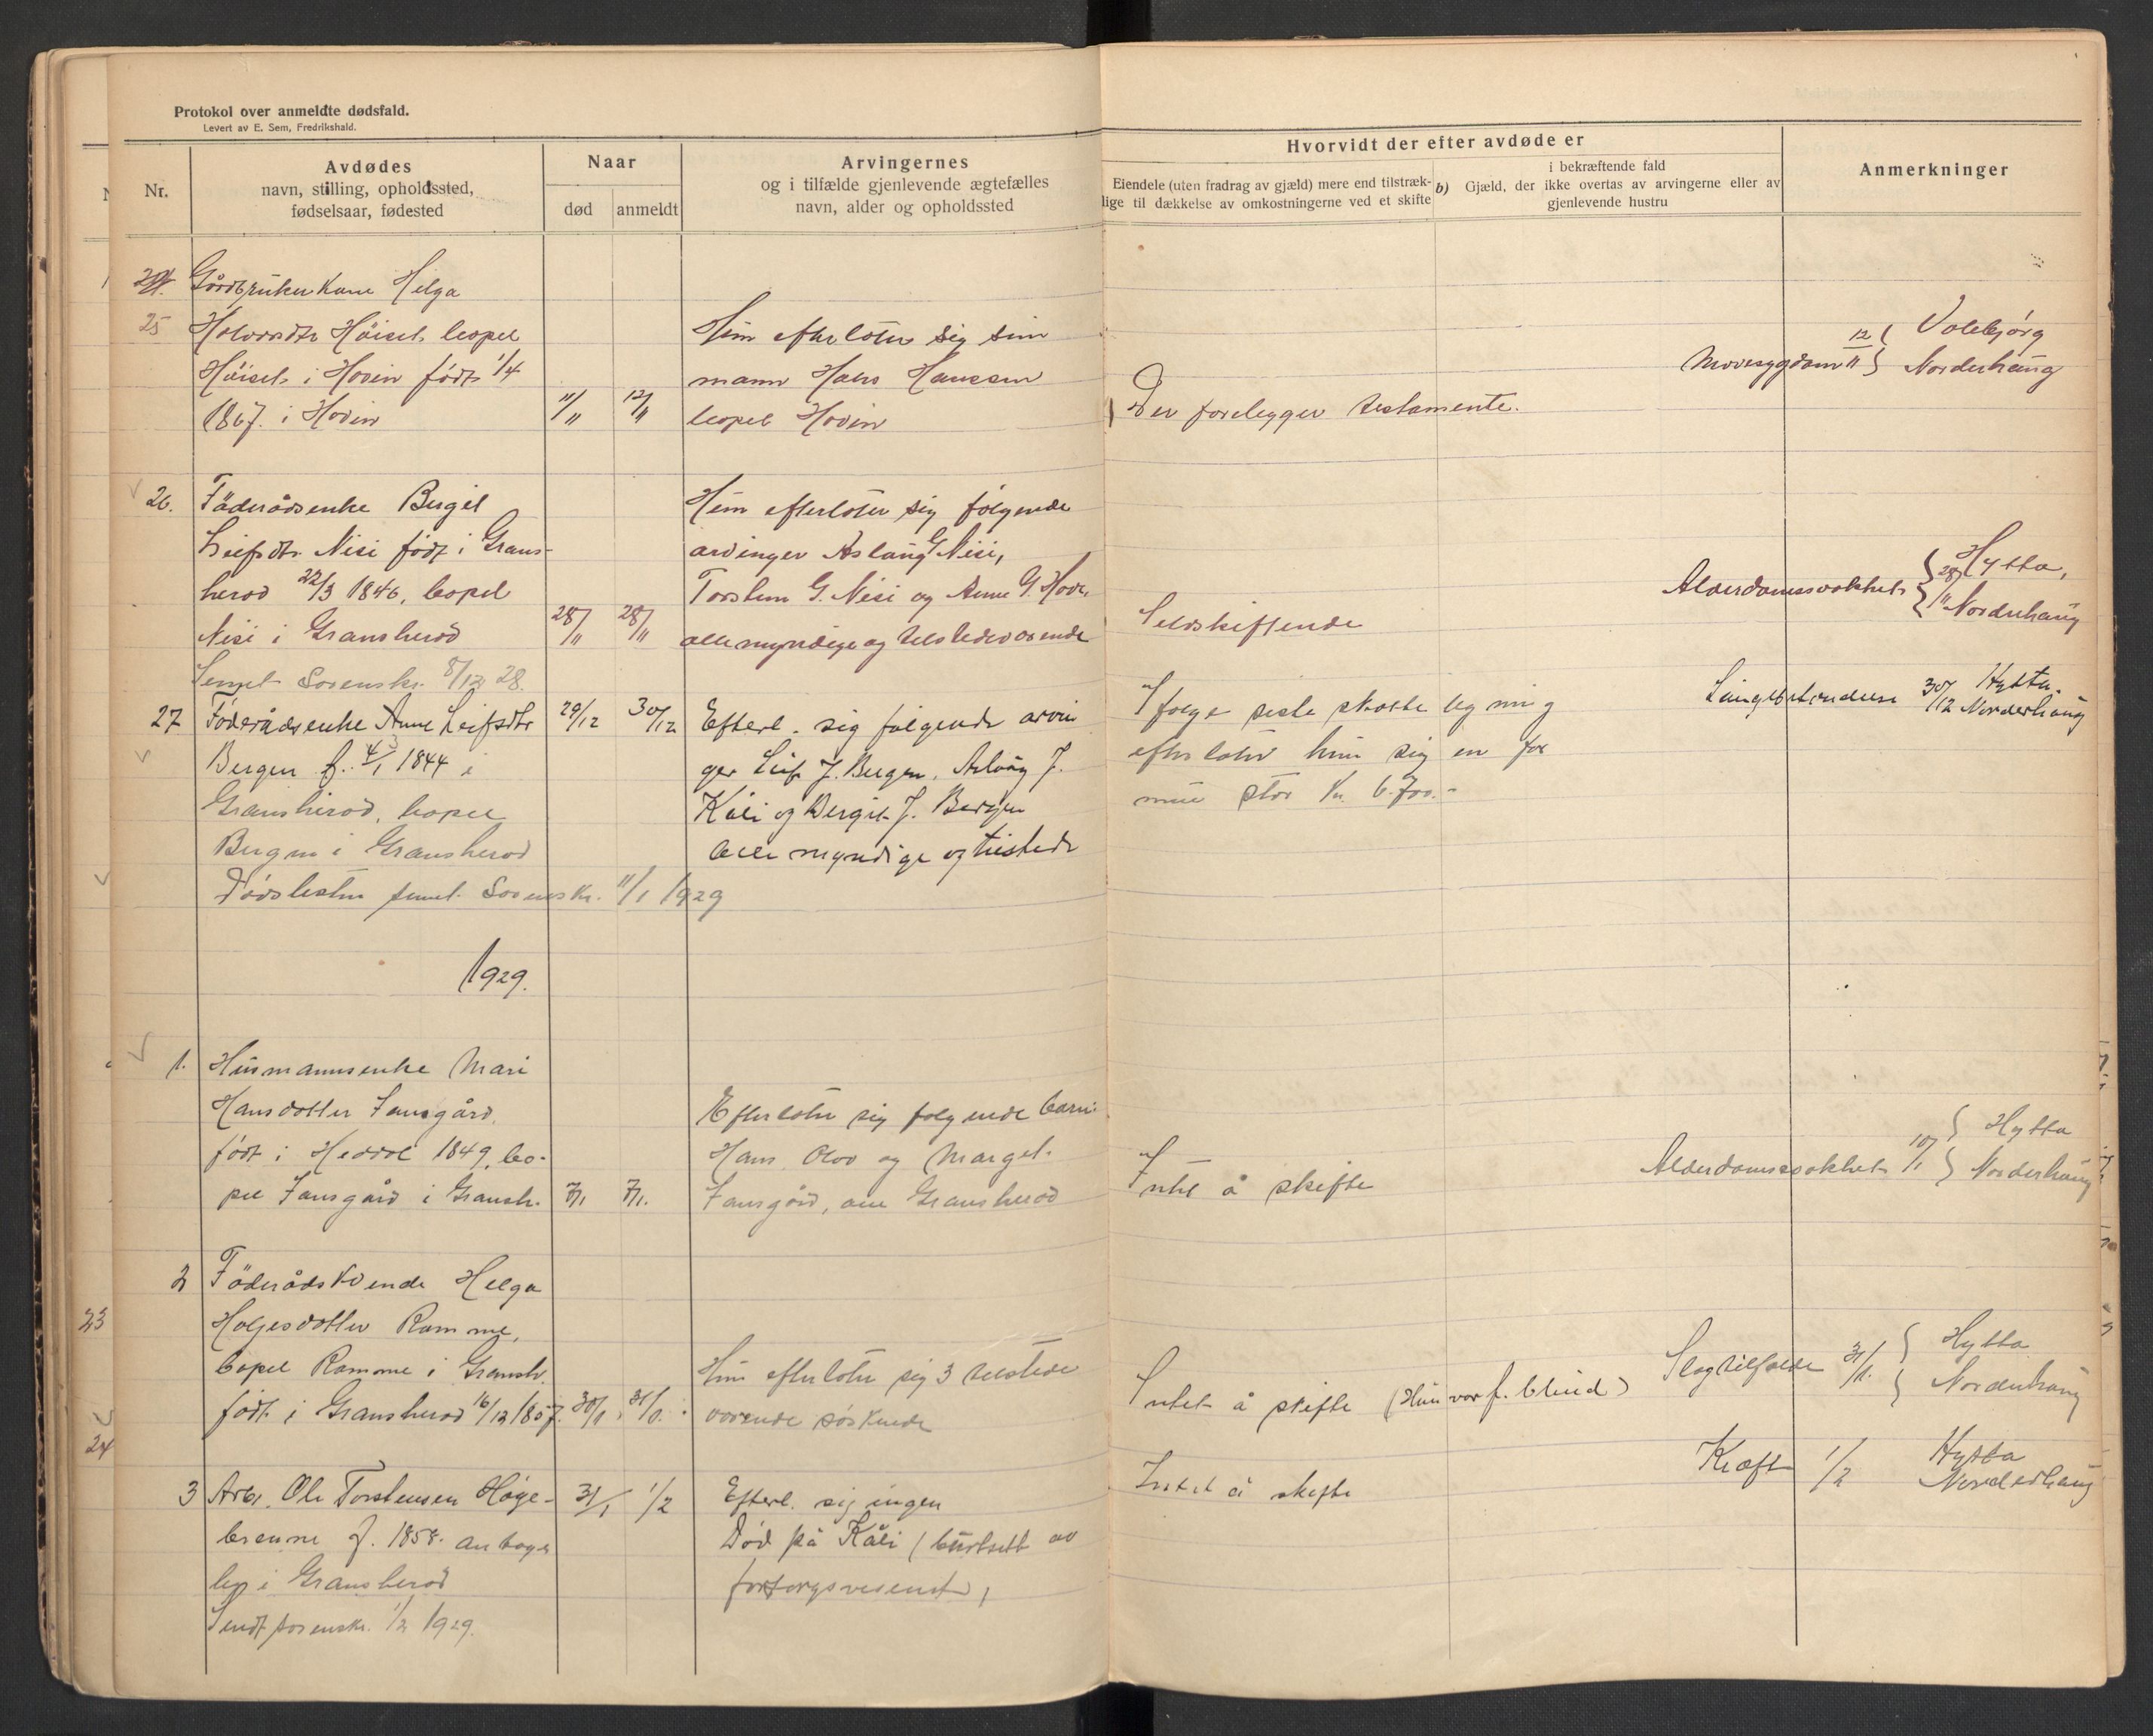 Protokol over anmeldte dødsfald.
Levert av E. Sem, Fredrikshald.
Nr.
Avdødes
navn, stilling, opholdssted,
fødselsaar, fødested
Naar
død
anmeldt
Arvingernes
og i tilfælde gjenlevende ægtefælles
navn, alder og opholdssted
Hvorvidt der efter avdøde er
Eiendele (uten fradrag av gjæld) mere end tilstræk-
lige til dækkelse av omkostningerne ved et skifte
b)
i bekræftende fald
Gjæld, der ikke overtas av arvingerne eller av
gjenlevende hustru
Anmerkninger
25
Gårdbruker kone Helga
Halvorsdtr Höiset bopel
Höiset i Hovin födt 1/4
1867. i Hovin
11/11
12/11
Hun efterlater sig sin
mann Hans Hanssen
bopel Hovin
Der forelegger testamente.
12/11
Volebjörg
Norderhaug
26.
Föderådsenke Bergit
Leifsdtr. Nisi födt i Grans-
herad 22/3 1846, bopel
Nisi i Gransherad
28/11
28/11
Sendt Sorenskr. 8/12 28.
Hun efterlater sig følgende
arvinger Aslaug G Nisi,
Torstein G. Nisi og Anne G. Hovd
alle myndige og tilstedeværende
Selvskiftende
Alderdomssvakhet
28/11
Hytta,
Norderhaug
27
Föderådsenke Anne Leifsdtr
Bergen f. 4/1 1844 i
Gransherad, bopel
Bergen i Gransherad
Dødslisten sendt Sorenskr. 11/1 1929
29/12
30/12
Efterl. sig følgende arvin
ger Leif J. Bergen, Aslaug J.
Kåli og Bergit J. Bergen
alle myndige og tilstede
Ifølge siste skatteligning
efterlater hun sig en for
mue stor kr. 6700.-
Lungebetendelse
30/12
Hytta.
Norderhaug
1929.
1.
Husmannsenke Mari
Hansdotter Fansgård,
født i Heddal 1849, bo-
pel Fansgård i Gransh.
7/1
7/1.
Efterlater sig følgende barn:
Hans, Olav og Margit
Fansgård, alle Gransherad
Intet å skifte
Alderdomssvakhet
10/1
Hytta
Norderhaug
2
Föderådskvende Helga
Holjesdotter Ramme,
bopel Ramme i Gransh.
födt i Gransherad 16/12 1857.
30/1
31/1.
Hun efterlater sig 3 tilstede
værende søskende
Intet å skifte (Hun var f. blind)
Slagtilfelde
31/1.
Hytta
Norderhaug
3
Arb. Ole Torstensen Høge-
brenne f. 1858. antage
lig i Gransherad
Sendt sorenskr. 1/2 1929.
31/1
1/2
Efterl. sig ingen
Død på Kåli (bortsett av
forsorgsvesenet)
Intet å skifte
Kræft
1/2
Hytta
Norderhaug
23
24